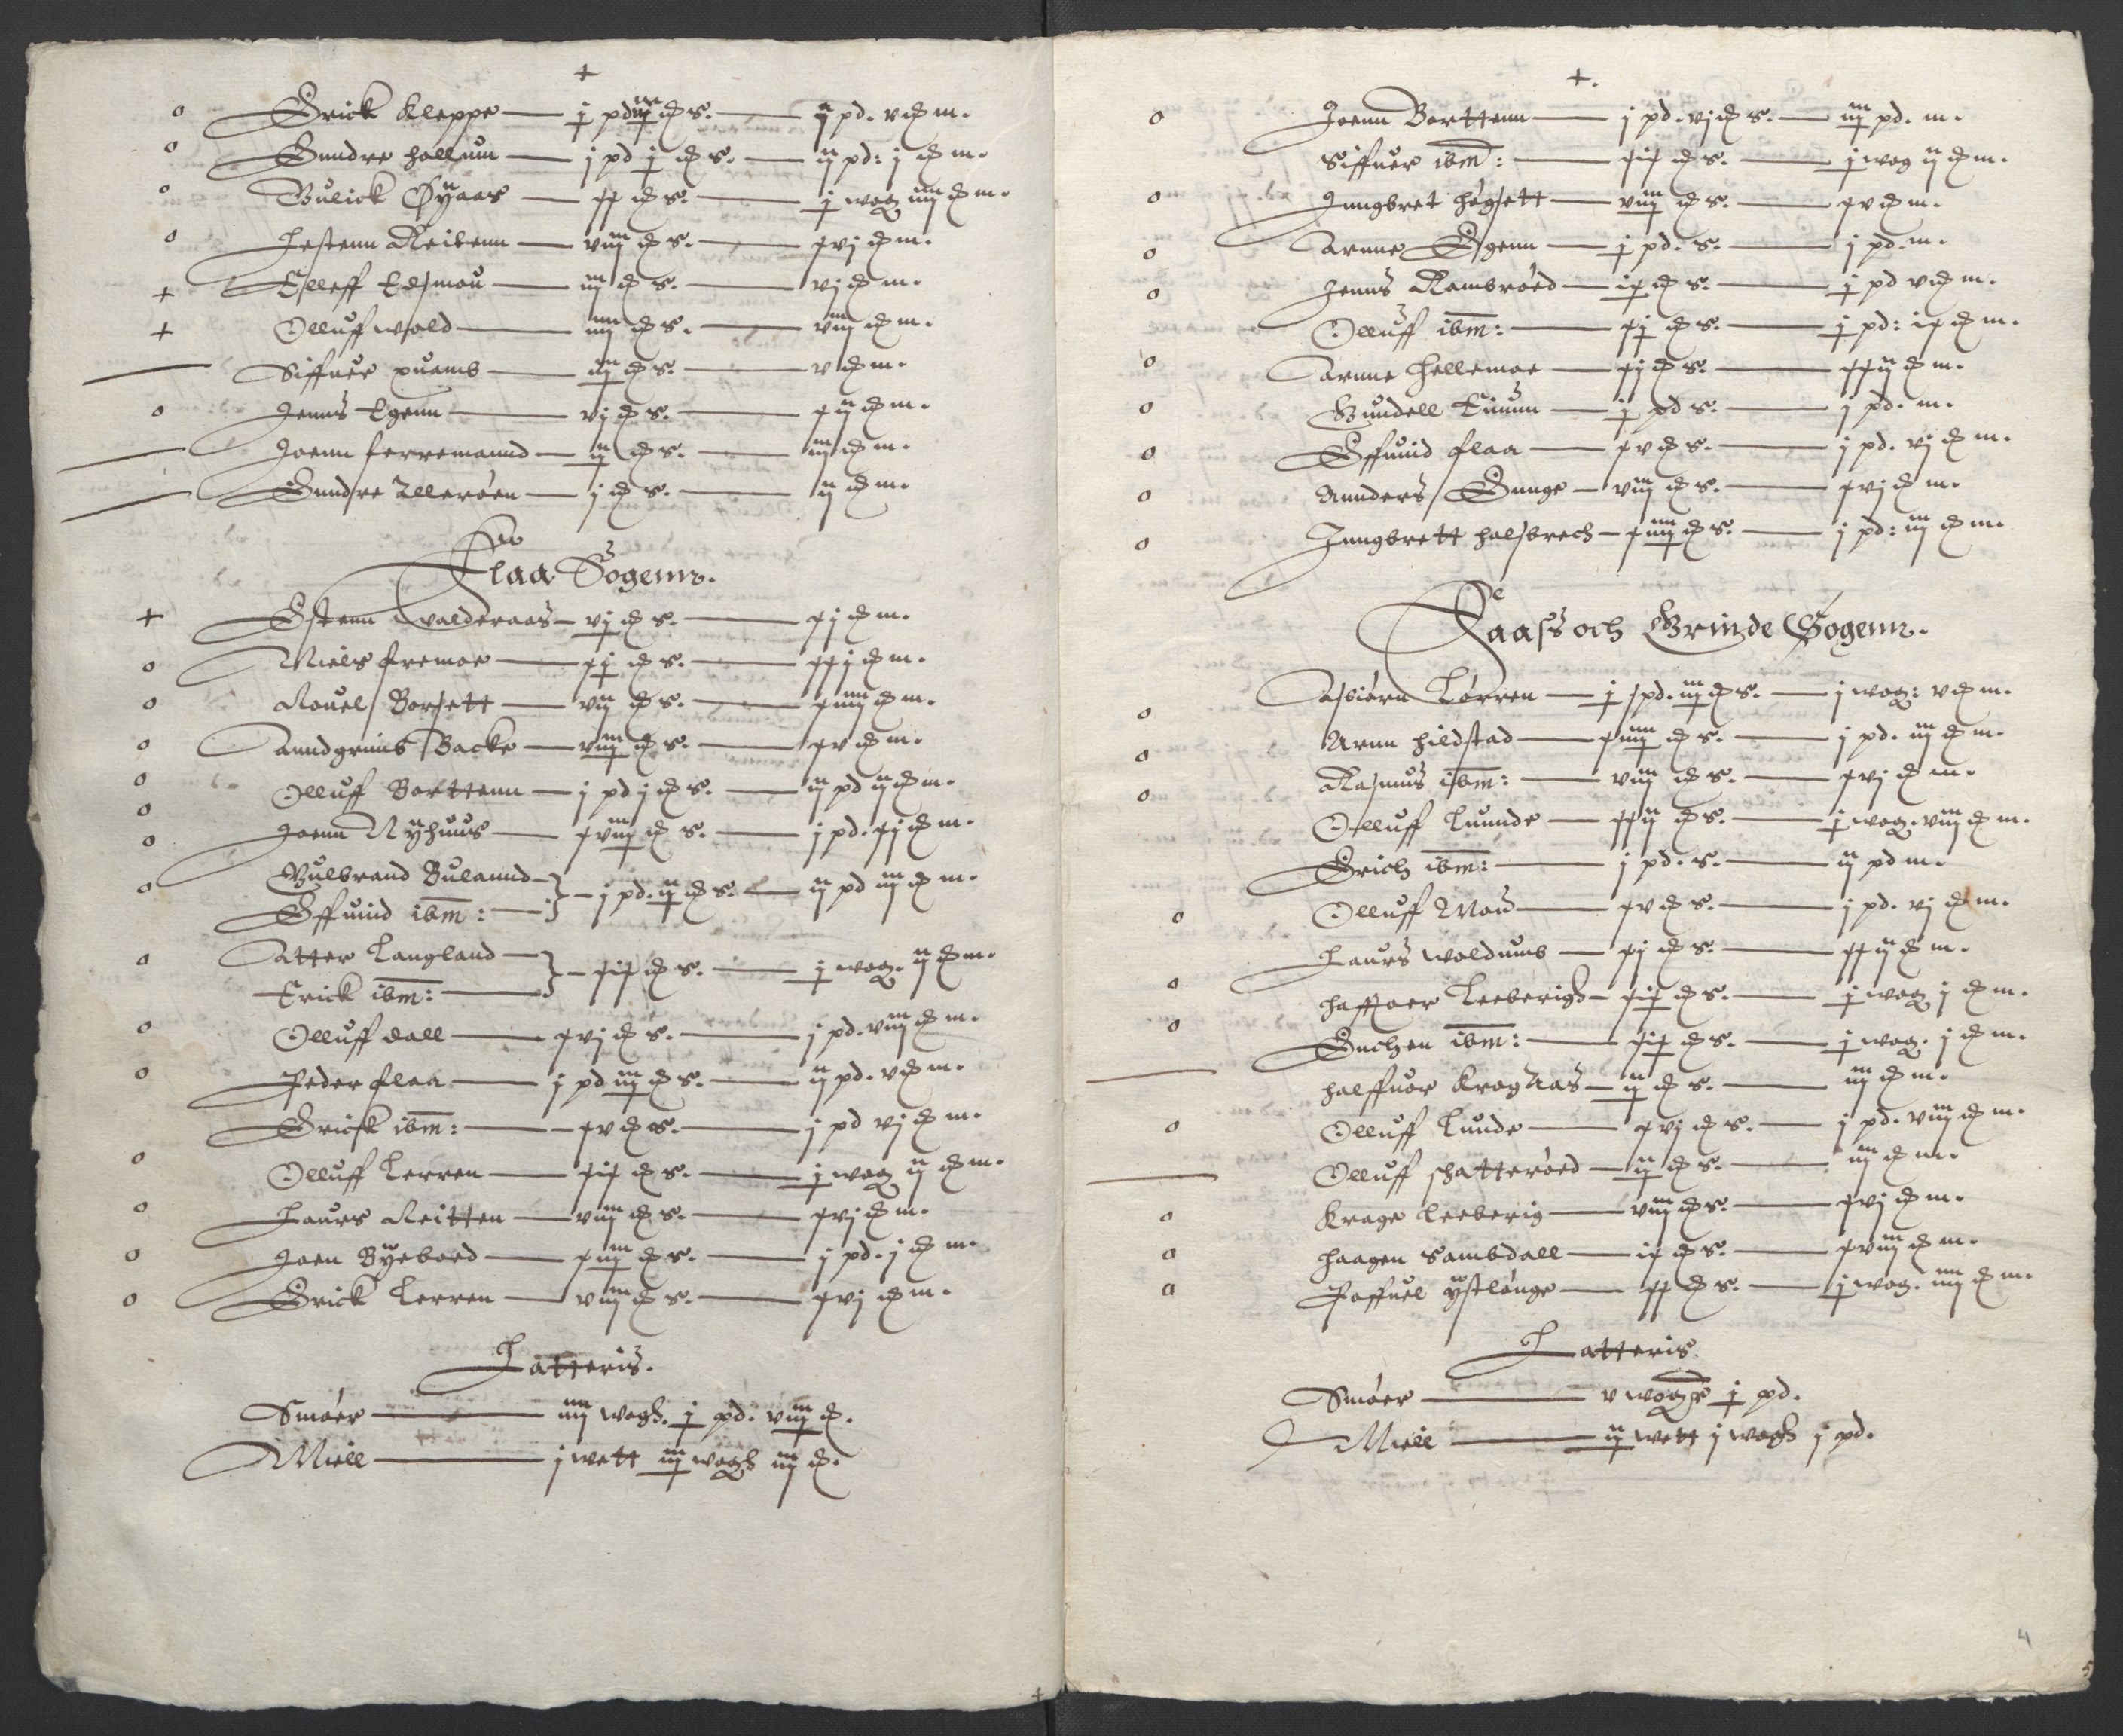 +
o Erick Kleppe — j pd iiij ℔ s. — ij pd. v ℔ m.
o Gundre hollum — j pd j ℔ s. — ij pd: j ℔ m.
o Gulick Øÿaas — xx ℔ s. — j wog iiij ℔ m.
o Festenn Reibenn — viij ℔ s. — xvj ℔ m.
+ Elleff Edsmou — iij ℔ s. — vj ℔ m.
+ Olluff wold — iiij ℔ s. — viij ℔ m.
Siffuer — iij ℔ s. — v ℔ m.
o Jenns Egenn — vj ℔ s. — xij ℔ m.
Joenn ferremannd — ij ℔ s. — iiij ℔ m.
Gundre Ullerøen — j ℔ s. — ij ℔ m.
Flaa Sogenn.
+ Estenn walderaas — vj ℔ s. — xj ℔ m.
o Niels fremoe — xj ℔ s. — xxj ℔ m.
o Rouel Borsett — vij ℔ s. — xiiij ℔ m.
o anndgrims Backe — viij ℔ s. — xv ℔ m.
o Olluff Borttenn — j pd j ℔ s. — ij pd ij ℔ m.
o
o Joenn Nÿhuus — xviij ℔ s. — j pd. xj ℔ m.
Gulbrand Bulannd —
o Effuind ibm: — } — j pd. ij ℔ s. — ij pd iij ℔ m.
o Atter Langland —
Erick ibm: — } — xix ℔ s. — j wog. ij ℔ m.
o Olluff dall — xvj ℔ s. — j pd. viij ℔ m.
o Peder flaa — j pd iij ℔ s. — ij pd. v ℔ m.
Erick ibm: — xv ℔ s. — j pd vj ℔ m.
o Olluff Lerren — xix ℔ s. — j wog ij ℔ m.
o Laurs Reitten — viij ℔ s. — xvj ℔ m.
o Joen Bÿeboed — xiij ℔ s. — j pd. j ℔ m.
o Erick Lerren — viij ℔ s. — xvj ℔ m.
Latteris.
Smøer — iiij wogh. j pd. viij ℔.
Miell — j wett iij wogh iij ℔.
4
+.
o Joenn Borttenn — j pd. vj ℔ s. — iij pd. m.
Siffuer ibm: — xix ℔ s. — j wog ij ℔ m.
o Jnngbret høgsett — viij ℔ s. — xv ℔ m.
o arnne Egenn — j pd. s. — j pd. m.
o Jenns Rambrøed — ix ℔ s. — j pd v ℔ m.
Olluff ibm: — xj ℔ s. — j pd: ix ℔ m.
o arnne hellemoe — xj ℔ s. — xxij ℔ m.
o Gundell Eiuun — j pd s. — j pd. m.
o Effuind flaa — xv ℔ s. — j pd. vj ℔ m.
o Annders Gunge — viij ℔ s. — xvj ℔ m.
o Jnngbrett halsbrech — xiiij ℔ s. — j pd: iij ℔ m.
Raass och Grinde Sogenn.
o Asbiørn Lørren — j pd. iij ℔ s. — j wog: v ℔ m.
o Arnn hildstad — xiiij ℔ s. — j pd. iij ℔ m.
o Rasmus ibm: — viij ℔ s. — xvj ℔ m.
Olluff Luunde — xxij ℔ s. — j wog. viij ℔ m.
Erich ibm: — j pd. s. — ij pd m.
o Olluff Mou — xv ℔ s. — j pd. vj ℔ m.
Laurs woldumb — xj ℔ s. — xxij ℔ m.
o haffoer Leeberigh — xix ℔ s. — j wog j ℔ m.
o Enchen ibm: — xix ℔ s. — j wog. j ℔ m.
halffuor Krogaas — ij ℔ s. — iij ℔ m.
o Olluff Lunde — xvj ℔ s. — j pd. viij ℔ m.
Olluff schatterøed — ij ℔ s. — iij ℔ m.
o Krage Leeberig — viij ℔ s. — xvj ℔ m.
o haagen Sambdall — ix ℔ s. — xviij ℔ m.
o Paffuel ÿstlønge — xx ℔ s. — j wog. iiij ℔ m.
Latteris.
Smøer — v wogr j pd.
Miell — ij wett j wogh j pd.
4
5